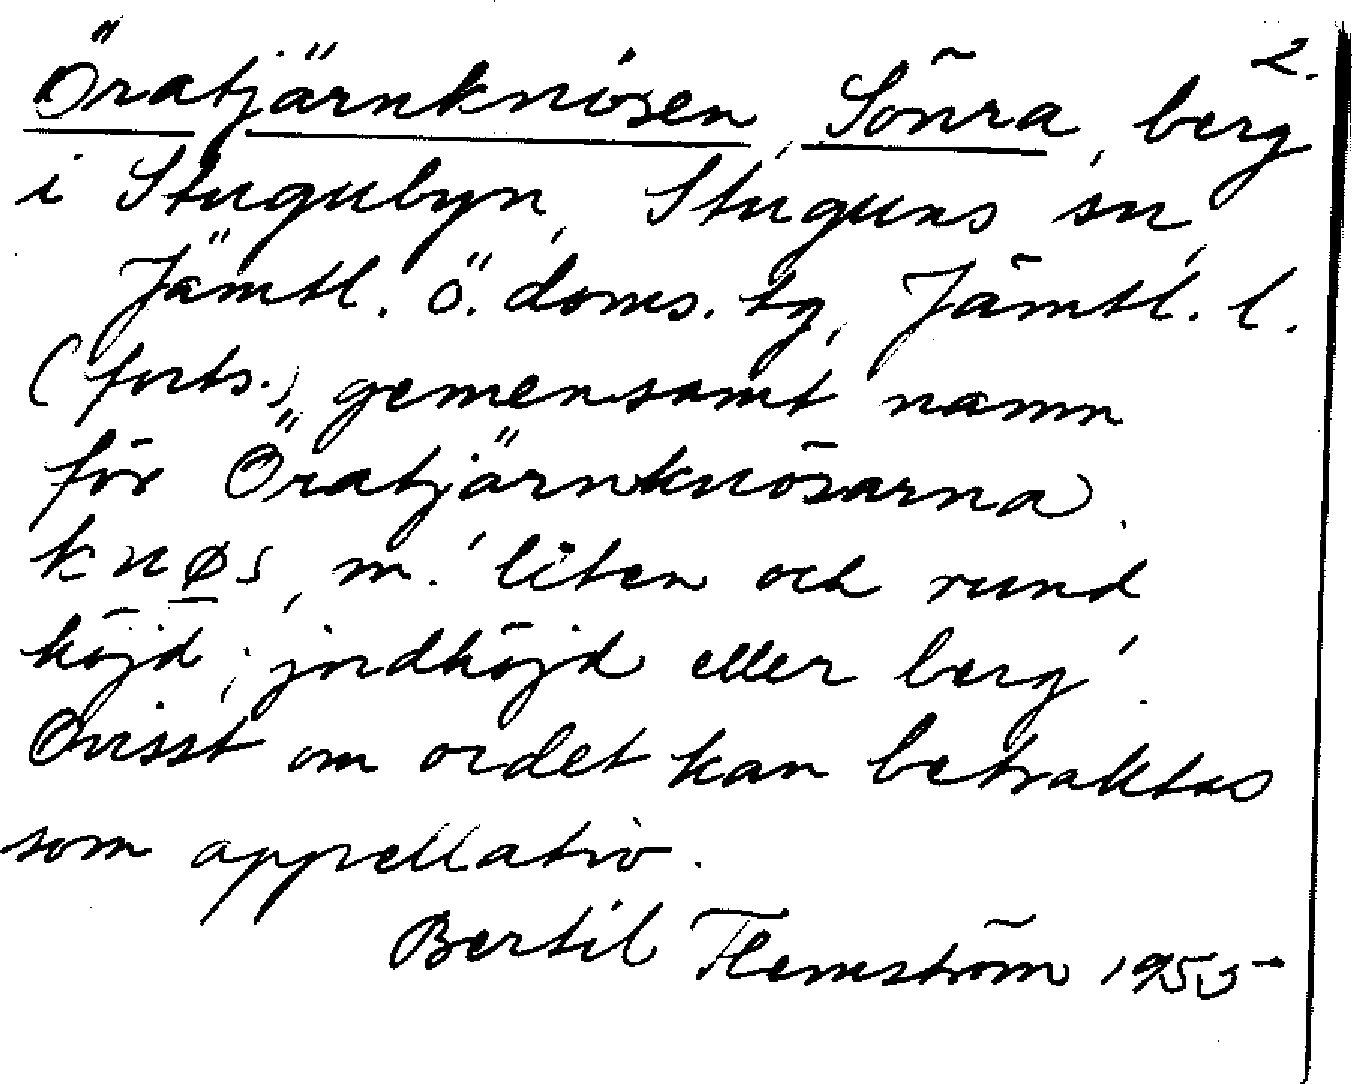 2.
Öratjärnknösen, Sönra, berg
i Stugubyn, Stuguns sn,
Jämtl. ö. doms. tg, Jämtl. l.
(forts.), gemensamt namn
för Öratjärnknösarna.
knøs, m. 'liten och rund
höjd; jordhöjd eller berg'.
Ovisst om ordet kan betraktas
som appellativ.
Bertil Flemström 1955